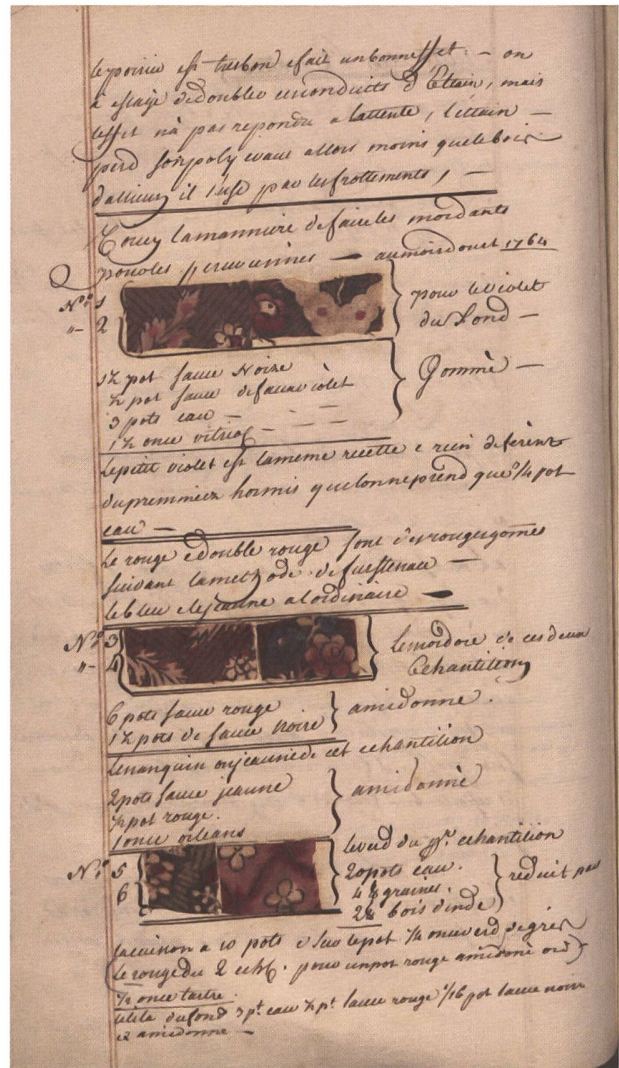 le poirié est tres bon e fait un bonn effet: – on
a essaÿe de doubler ces conduits d'Etain, mais
leffet n'a pas repondu a lattente, l'ettain –
perd son poly evaut allors moins que le bois
d'allieurs il s'use par les frottements, –
Voicy la manniere de faire les mordants
pour les peruviennes – au mois d'out 1764
Nro. 1
" – 2
pour le violet
du fond –
1½ pot sauce Noire
½ pot sauce de faux violet
3 pots eau –
1½ once vitriol –
Gommè –
Le petit violet est la meme recette e rien deferent
du premmier hormis que lonne prend que ¾ pot
eau –
Le rouge e double rouge sont des rouges gomes
suivant la methode de
le bleu e le jaune a lordinaire –
Nro. 3
" – 4
le mordore de ces deux
Echantilions
6 pots sauce rouge
1½ pots de sauce Noire
amidonne.
Le nanquin ou jaune de cet echantilion
2 pots sauce jaune
½ pot rouge.
1 once orleans
amidonnè
Nro. 5
6
le verd du pr. echantilion
20 pots eau.
4 graines.
2 bois d'inde
reduit par
la cuison a 10 pots e sur le pot ¼ once verd de gris
(Le rouge du 2 ech. pour un pot rouge amidoné
½ once tartre.
du fond 3 pt. eau ½ pt sauce rouge 1/16 pot sauce noire
e amidonne –